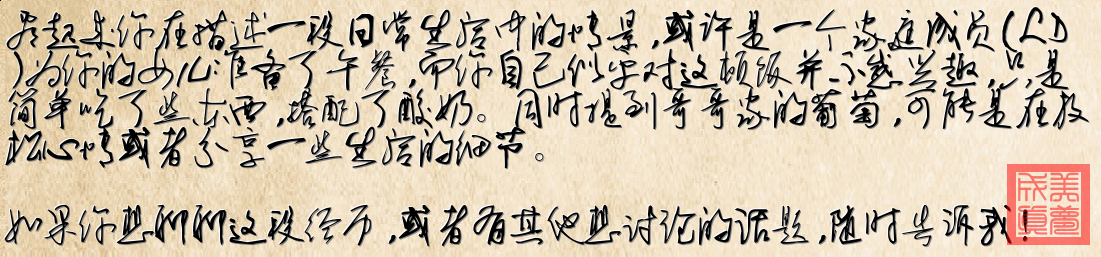 看起来你在描述一段日常生活中的情景,或许是一个家庭成员(LD
)为你的女儿准备了午餐,而你自己似乎对这顿饭并不感兴趣,只是
简单吃了些东西,搭配了酸奶。同时提到哥哥家的葡萄,可能是在放
松心情或者分享一些生活的细节。
如果你想聊聊这段经历,或者有其他想讨论的话题,随时告诉我!
美意
成真